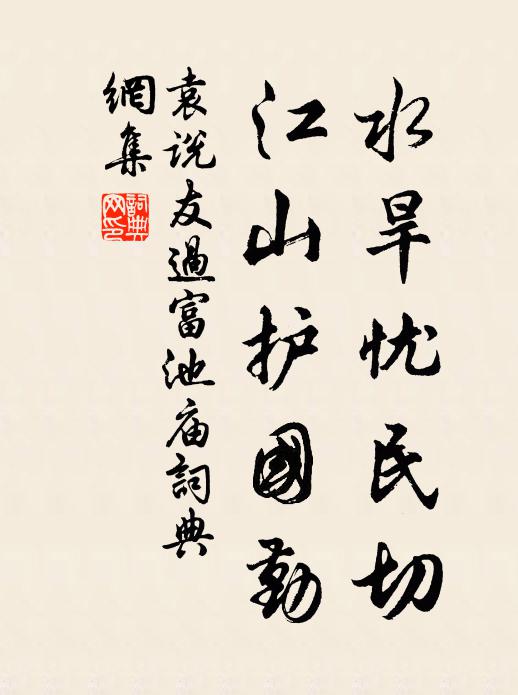 水旱忧民切
江山护國勤
袁说友過富池庙詞典
網集
詞典
网印